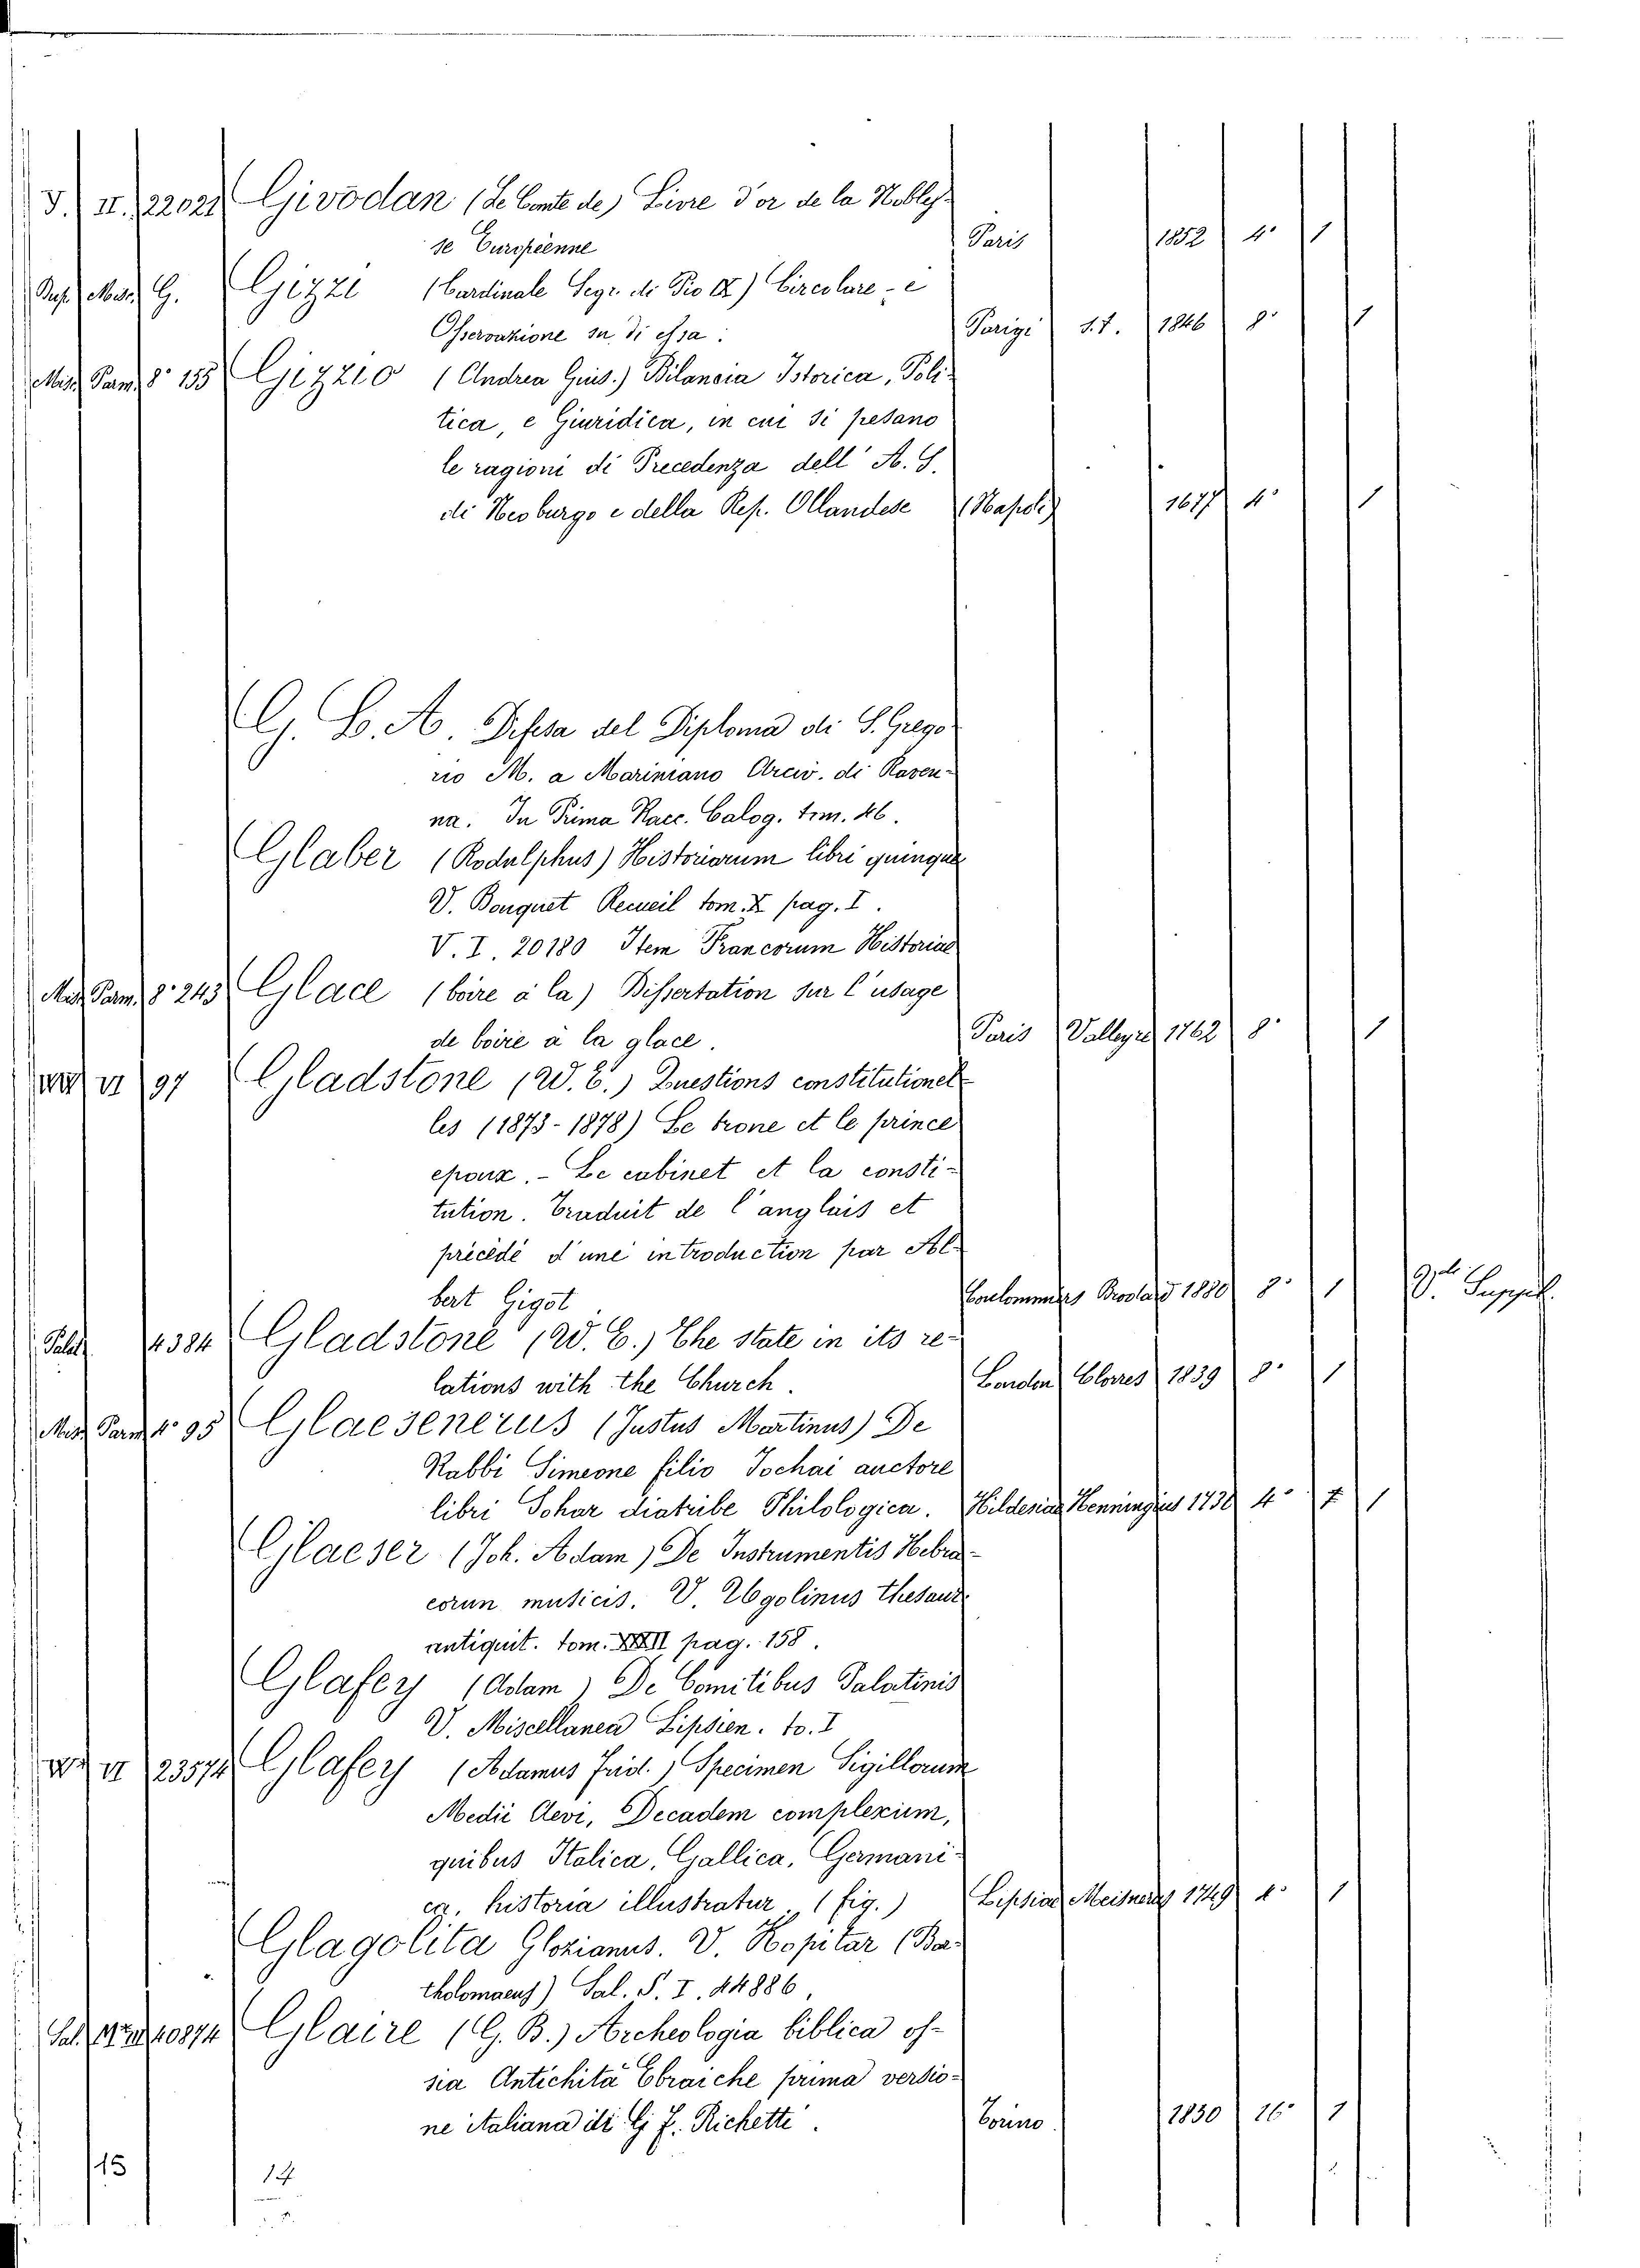 V. II. 22021 Givodan (Le Conte de) Livre d'or de la Nobles-
se Européenne Paris 1852 4° 1
G. Gizzi (Cardinale Segr. di Pio IX) Circolare - e
Osservazione su di essa: Parigi s.t. 1846 8° 1
Misc. Parm. 8° 155 Gizzio (Andrea Gius.) Bilancia Istorica, Poli-
tica, e Giuridica, in cui si pesano
le ragioni di Precedenza dell' A. S.
di Neoburgo e della Rep. Ollandese (Napoli) 1677 4° 1
G. B. A. Difesa del Diploma di S. Grego-
rio M. a Mariniano Arciv. di Raven-
na. In Prima Racc. Calog. tom. 46.
Glaber (Rodulphus) Historiarum libri quinque
V. Bouquet Recueil tom. X pag. I.
V. I. 20180 Item Francorum Historiae
Misc. Parm. 8° 243 Glace (boire à la) Dissertation sur l'usage
de boire à la glace. Paris Valleyre 1762 8° 1
VI 97 Gladstone (W. E.) Questions constitutionel-
les (1873-1878) Le trone et le prince
epoux. - Le cabinet et la consti-
tution. Traduit de l'anglais et
précédé d'une introduction par Al-
bert Gigot Coulommiers Brodard 1880 8° 1 V. Suppl.
Palat. 4384 Gladstone (W. E.) The state in its re-
lations with the Church. London Clowes 1839 8° 1
Misc. Parm. 4° 95 Glaesenerus (Justus Martinus) De
Rabbi Simeone filio Jochai auctore
libri Sohar diatribe Philologica. Hildesiae Henningius 1736 4° 1
Glaeser (Joh. Adam) De Instrumentis Hebrae-
corun musicis. V. Ugolinus thesaur.
antiquit. tom. XXXII pag. 158.
Glafey (Adam) De Comitibus Palatinis
V. Miscellanea Lipsien. to. I
VI 23574 Glafey (Adamus Frid.) Specimen Sigillorum
Medii Aevi, Decadem complexum,
quibus Italica, Gallica, Germani-
ca, historia illustratur (fig.) Lipsiae Meisnerus 1749 4° 1
Glagolita Glozianus. V. Kopitar (Ba-
tholomaeus) Sal. S. I. 44886,
Sal. 40874 Glaire (G. B.) Archeologia biblica os-
sia Antichità Ebraiche prima versio-
ne italiana di G. F. Richetti. Torino 1830 16° 1
15 14